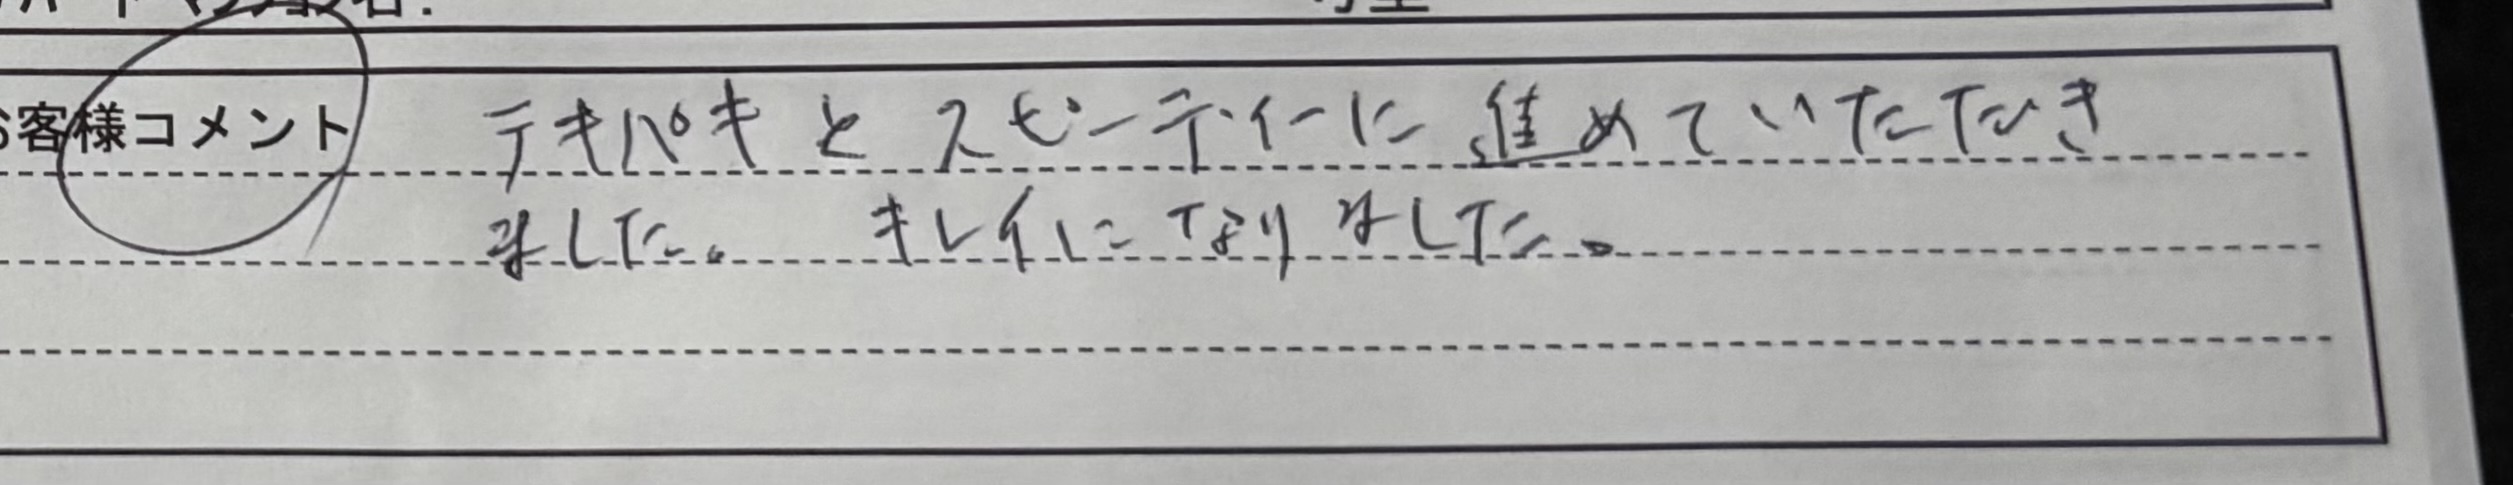 お客様コメント テキパキとスピーディーに進めていただき
ました。 キレイになりました。